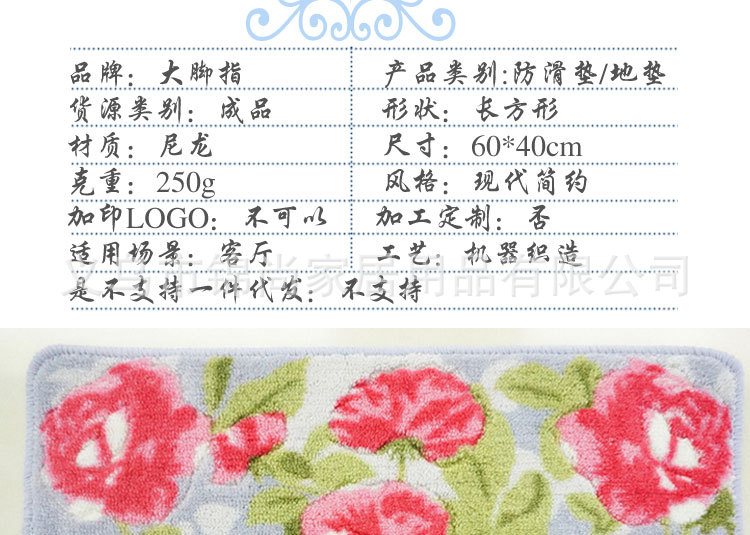 品牌：大脚指 产品类别:防滑垫/地垫
货源类别：成品 形状：长方形
材质：尼龙 尺寸：60*40cm
克重：250g 风格：现代简约
加印LOGO：不可以 加工定制：否
适用场景：客厅 工艺：机器织造
义乌市锦尚家居用品有限公司
是不支持一件代发：不支持